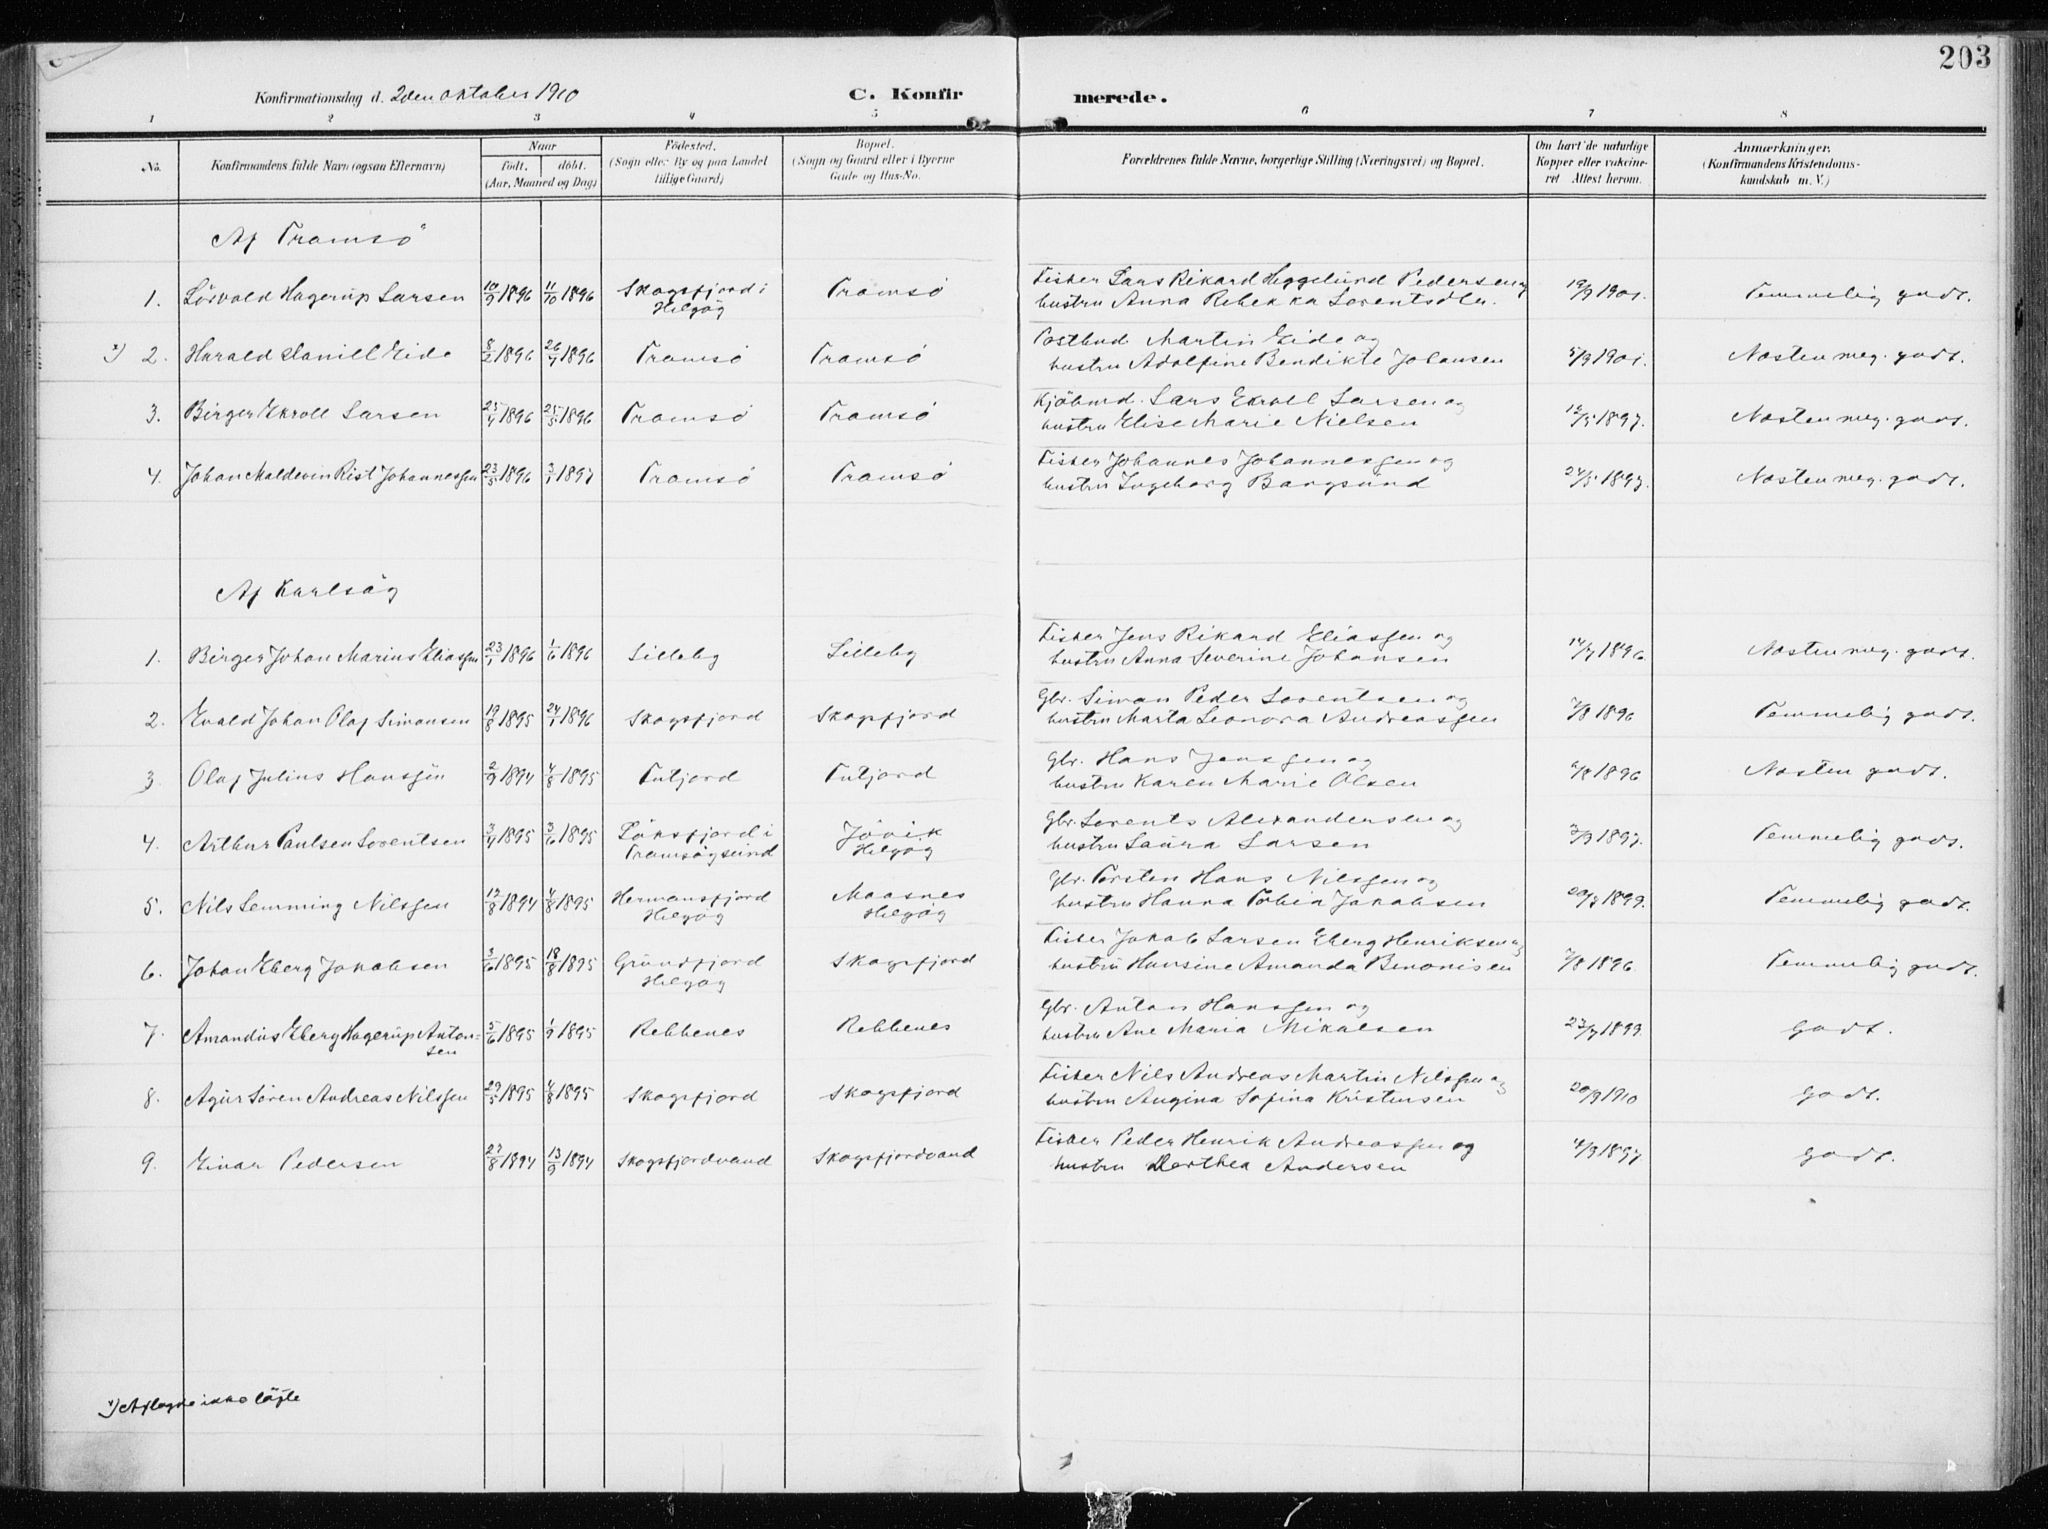 203
Konfirmationsdag d. 2den oktober 1910 C. Konfirmerede.
1 2 3 4 5 6 7 8
No. Konfirmandens fulde Navn (ogsaa Efternavn) Naar født. døbt. (Aar, Maaned og Dag) Fødested. (Sogn eller By og paa Landet tillige Gaard) Bopæl. (Sogn og Gaard eller i Byerne Gade og Hus-No. Forældrenes fulde Navne, borgerlige Stilling (Næringsvei) og Bopæl. Om havt de naturlige Kopper eller vaccineret Attest herom. Anmærkninger. (Konfirmandens Kristendomskundskab m. V.)
Af Tromsø
1. Sörvald Hagerup Larsen 10/9 1896 11/10 1896 Skogsfjord i Helgøy Tromsø Fisker Lars Rikard Heggelund Pedersen og hustru Anna Rebekka Lorentsdtr. 19/9 1901. Temmelig godt.
x) 2. Harald Daniel Eide 8/2 1896 26/7 1896 Tromsø Tromsø Postbud Martin Eide og hustru Adolfine Bendikte Johansen 5/9 1901. Næsten meg. godt.
3. Birger Ekroll Larsen 25/4 1896 25/5 1896 Tromsø Tromsø Kjøbmd. Lars Ekroll Larsen og hustru Elise Marie Nielsen 12/5 1897. Næsten meg. godt.
4. Johan Maldevin Rist Johannessen 23/5 1896 3/1 1897 Tromsø Tromsø Fisker Johannes Johannessen og hustru Ingeborg Bangsund 24/5 1897. Næsten meg. godt.
Af Karlsøy
1. Birger Johan Marius Eliassen 23/1 1896 1/6 1896 Lilleby Lilleby Fisker Jens Rikard Eliassen og hustru Anna Severine Johansen 14/7 1896. Næsten meg. godt.
2. Evald Johan Olaf Simonsen 19/8 1895 24/1 1896 Skogsfjord Skogsfjord Gbr. Simon Peder Lorentsen og hustru Marta Leonora Andreassen 7/8 1896 Temmelig godt.
3. Olaf Julius Hanssen 2/9 1894 4/8 1895 Futjord Futjord Gbr. Hans Jenssen og hustru Karen Marie Olsen 6/8 1896 Næsten godt.
4. Arthur Paulsen Lorentsen 3/4 1895 3/6 1895 Löksfjord i Tromsøysund Jövik Helgøy Gbr. Lorents Alexandersen og hustru Laura Larsen 3/9 1897. Temmelig godt.
5. Nils Lemming Nilssen 12/8 1894 4/8 1895 Hermansfjord Helgøy Maasnes Helgøy Gbr. Torsten Hans Nilssen og hustru Hanna Tobia Jakobsen 20/8 1899. Temmelig godt.
6. Johan Eberg Jakobsen 3/6 1895 18/8 1895 Grundfjord Helgøy Skogsfjord Fisker Jakob Larsen Eberg Henriksen og hustru Hansine Amanda Benonisen 7/8 1896. Temmelig godt.
7. Amandus Eberg Hagerup Antonsen 5/6 1895 1/9 1895 Rebbenes Rebbenes Gbr. Anton Hanssen og hustru Ane Maria Mikalsen 23/7 1899. godt.
8. Agur Sören Andreas Nilssen 29/5 1895 4/8 1895 Skogsfjord Skogsfjord Fisker Nils Andreas Martin Nilssen og hustru Augina Sofina Kristensen 20/9 1910 godt.
9. Einar Pedersen 27/8 1894 13/9 1894 Skogsfjordvand Skogsfjordvand Fisker Peder Henrik Andreassen og hustru Dorthea Andersen 4/9 1897 godt.
x) Aflagde ikke löfte